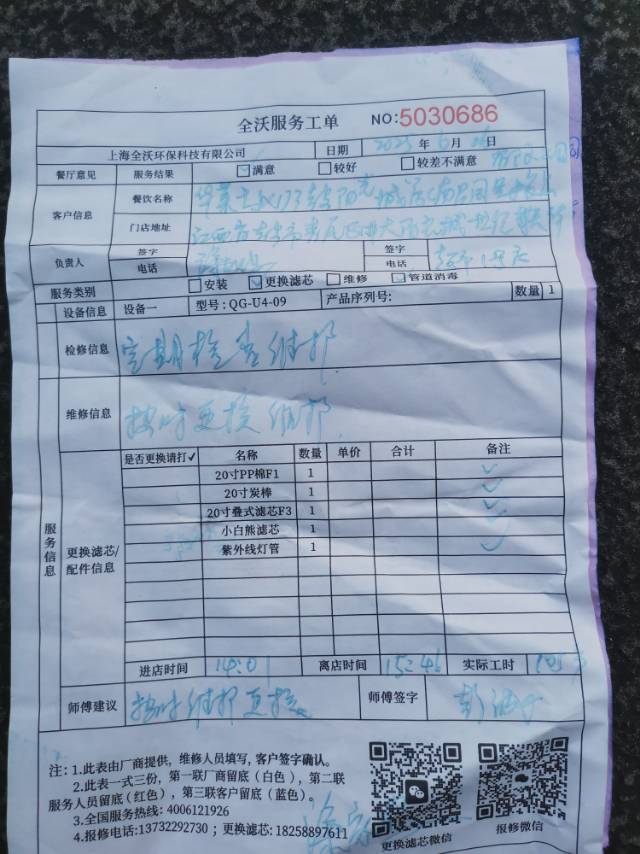 全沃服务工单 NO:5030686
上海全沃环保科技有限公司 日期 2025 年 6 月 日
餐厅意见 服务结果 ✓满意 □较好 □较差不满意
客户信息 餐饮名称
门店地址 江西省
负责人 签字 签字
电话 电话
服务类别 □安装 ☑更换滤芯 □维修 □管道消毒
设备信息 设备一 型号:QG-U4-09 产品序列号: 数量 1
检修信息 定期检查维护
维修信息 按时更换维护
服务信息
更换滤芯/配件信息
是否更换请打√ 名称 数量 单价 合计 备注
20寸PP棉F1 1 ✓
20寸炭棒 1 ✓
20寸叠式滤芯F3 1 ✓
小白熊滤芯 1 ✓
紫外线灯管 1 ✓
进店时间 14:01 离店时间 15:46 实际工时
师傅建议 按时维护更换 师傅签字
注:1.此表由厂商提供,维修人员填写,客户签字确认。
2.此表一式三份,第一联厂商留底(白色),第二联
服务人员留底(红色),第三联客户留底(蓝色)。
3.全国服务热线:4006121926
4.报修电话:13732292730;更换滤芯:18258897611
更换滤芯微信 报修微信